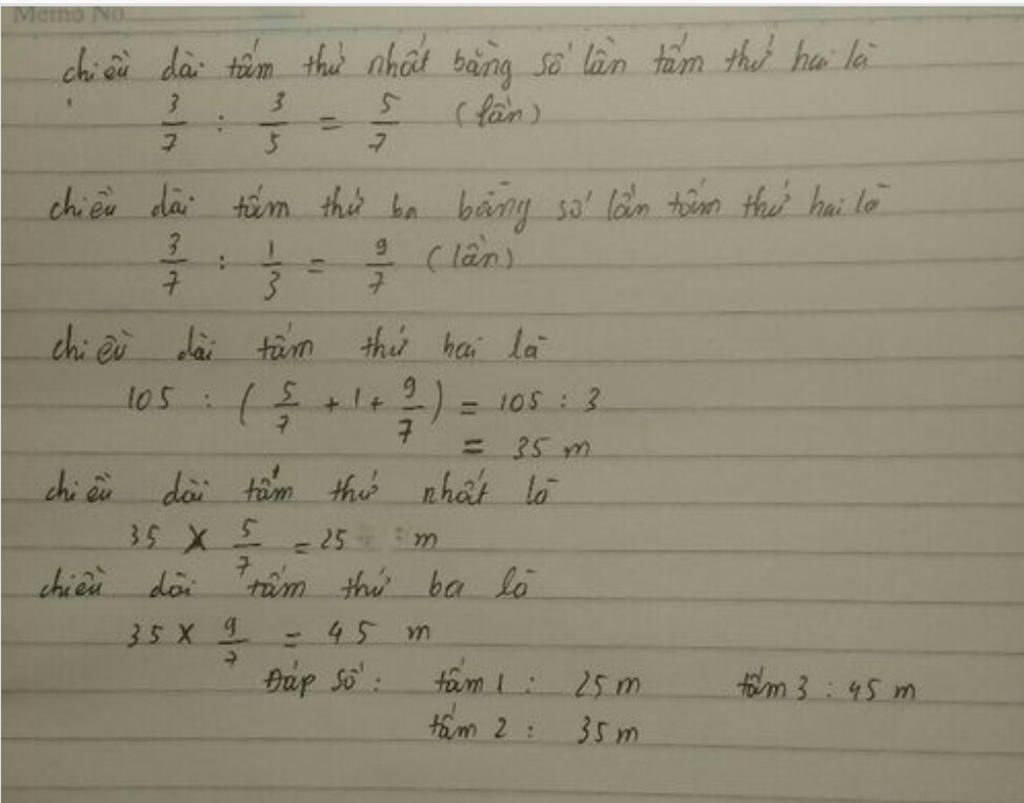 Memo No.
chiều dài tấm thứ nhất bằng số lần tấm thứ hai là
3/7 : 3/5 = 5/7 (lần)
chiều dài tấm thứ ba bằng số lần tấm thứ hai là
3/7 : 1/3 = 9/7 (lần)
chiều dài tấm thứ hai là
105 : ( 5/7 + 1 + 9/7 ) = 105 : 3
= 35 m
chiều dài tấm thứ nhất là
35 x 5/7 = 25 m
chiều dài tấm thứ ba là
35 x 9/7 = 45 m
Đáp số : tấm 1 : 25 m tấm 3 : 45 m
tấm 2 : 35 m